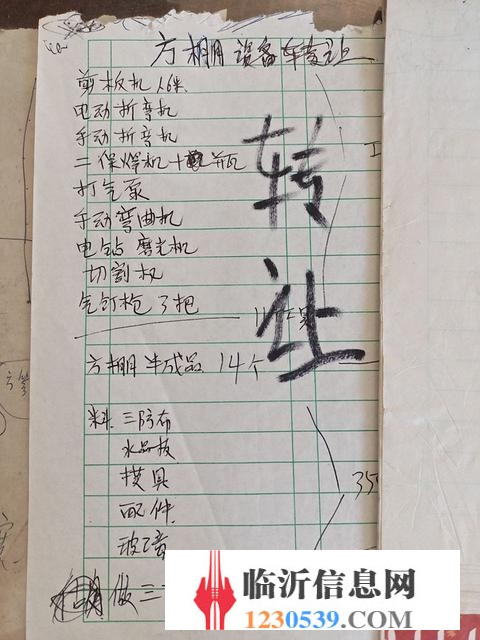 方棚设备转让
剪板机 1.6米
电动折弯机
手动折弯机
二保焊机+瓶
打气泵
手动弯曲机
电钻 磨光机
切割机
气钉枪 3把
转让
方棚半成品 14个
料 三防布
水晶板
模具
配件
玻璃
35
做三
临沂信息网
1230539.com